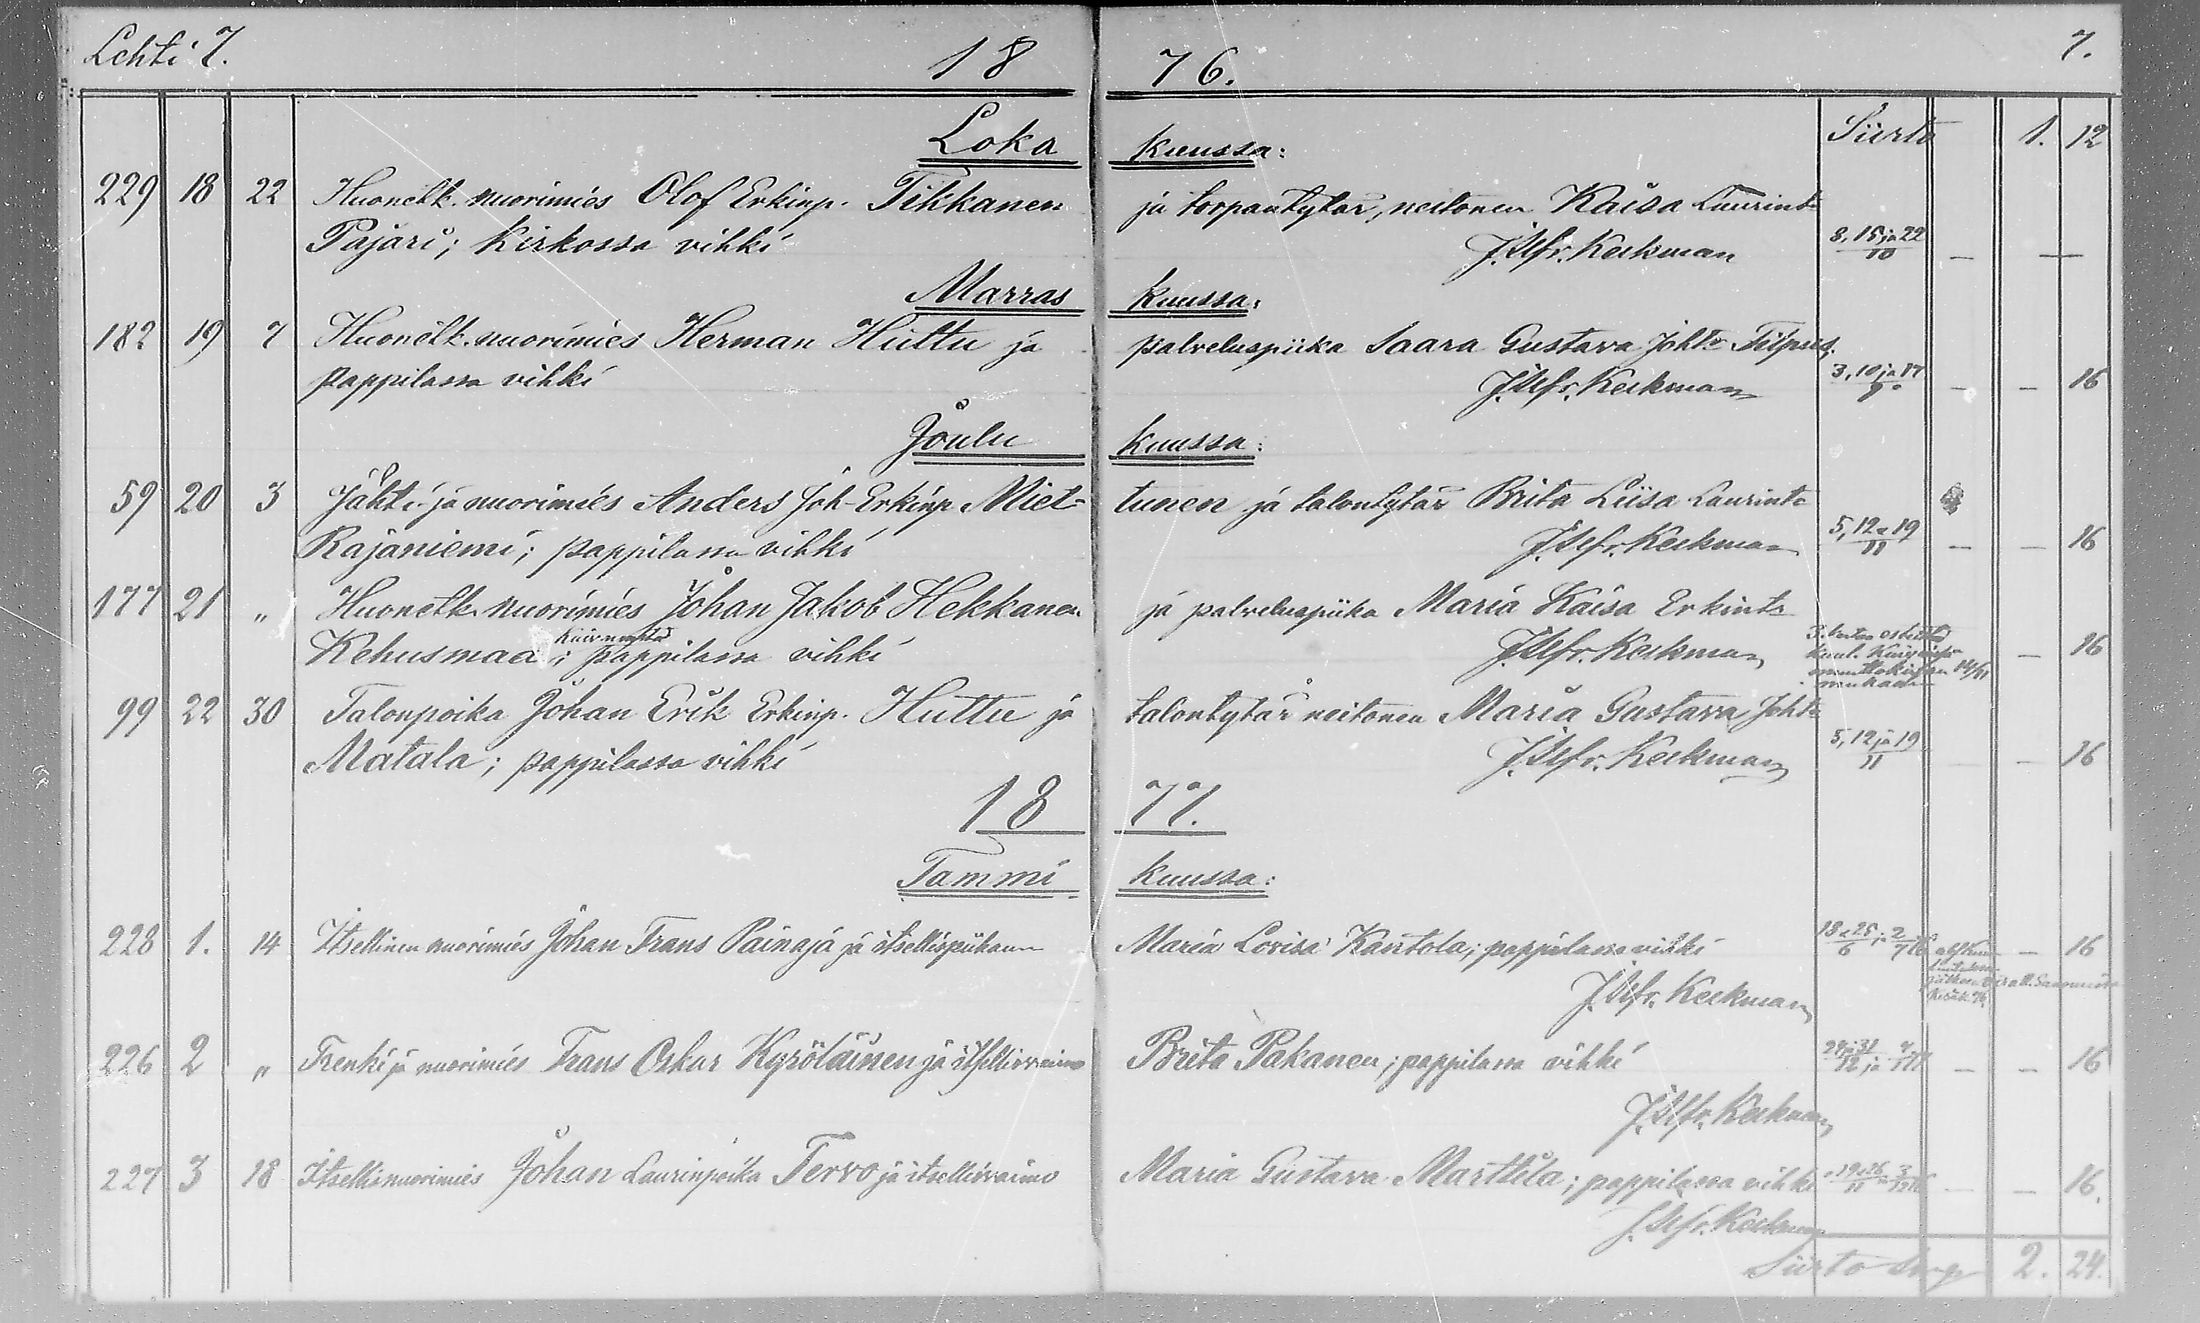 Lehti 7. 18 76. 7.
Loka kuussa: Siirto 1. 12
229 18 22 Huonetk. nuorimies Olof Erkinp. Tikkanen ja torpantytär, neitonen Kaisa Laurint.
Pajari; Kirkossa vihki J. Alfr. Keckman 8, 15 ja 22/10 — —
Marras kuussa:
182 19 7 Huonetk. nuorimies Herman Huttu ja palveluspiika Saara Gustava Joh.tr
pappilassa vihki J. Alfr. Keckman 3, 10 ja 17/9 — — 16
Joulu kuussa:
59 20 3 Jäht. ja nuorimies Anders Joh. Erkinp. Miet- tunen ja talontytär Brita Liisa Laurint.
Rajaniemi; pappilassa vihki J. Alfr. Keckman 5, 12 " 19/11 — — 16
177 21 " Huonetk. nuorimies Johan Jakob Hekkanen ja palveluspiika Maria Kaisa Erkint.
Kehusmaa; pappilassa vihki J. Alfr. Keckman — 16
99 22 30 Talonpoika Johan Erik Erkinp. Huttu ja talontytär neitonen Maria Gustava Joh.t.
Matala; pappilassa vihki J. Alfr. Keckman 5, 12 ja 19/11 — — 16
18 77.
Tammi kuussa:
228 1. 14 Itsellinen nuorimies Johan Frans Painaja ja itsellispiikanen Maria Lovisa Kantola; pappilassa vihki — 16
J. Alfr. Keckman
226 2 " Trenki ja nuorimies Frans Oskar Kyröläinen ja itsellisvaimo Brita Pakanen; pappilassa vihki — — 16
J. Alfr. Keckman
227 3 18 Itsellisnuorimies Johan Laurinpoika Tervo ja itsellisvaimo Maria Gustava Marttila; pappilassa vihki — — 16.
J. Alfr. Keckman
Siirto 2. 24.